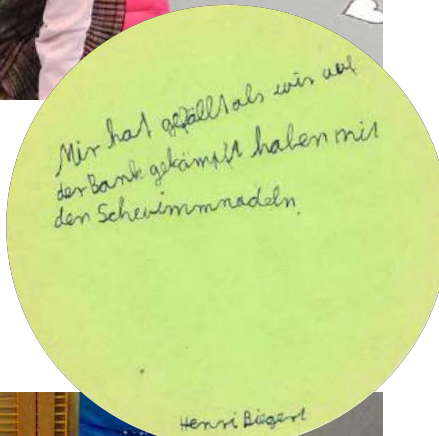 Mir hat gefällt als wir auf
der Bank gekämpft haben mit
den Schwimmnadeln.
Henri Biegert